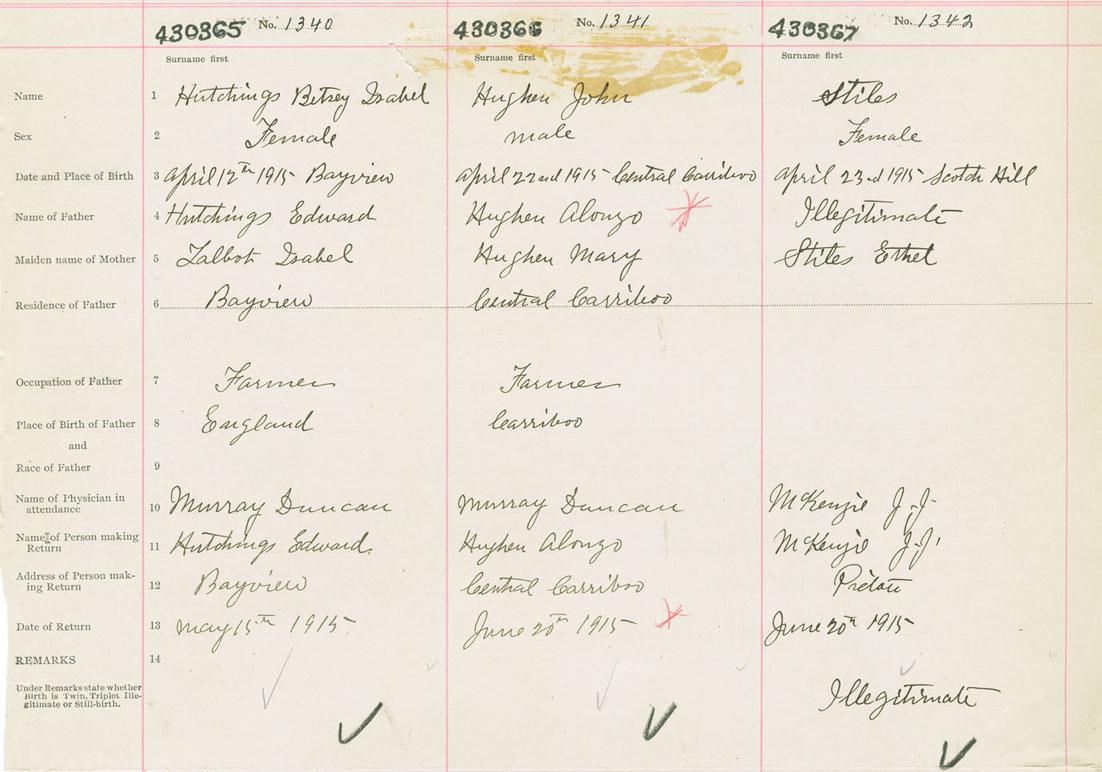 430365 No. 1340 430366 No. 1341 430367 No. 1342
Surname first Surname first Surname first
Name 1 Hutchings Betsey Isabel Hughen John Stiles
Sex 2 Female male Female
Date and Place of Birth 3 April 12th 1915 Bayview April 22nd 1915 Central Carriboo April 23rd 1915 Scotch Hill
Name of Father 4 Hutchings Edward Hughen Alonzo Illegitimate
Maiden name of Mother 5 Talbot Isabel Hughen Mary Stiles Ethel
Residence of Father 6 Bayview Central Carriboo
Occupation of Father 7 Farmer Farmer
Place of Birth of Father 8 England Carriboo
and
Race of Father 9
Name of Physician in
attendance 10 Murray Duncan Murray Duncan McKenzie J.J.
Name of Person making
Return 11 Hutchings Edward. Hughen Alonzo McKenzie J.J.
Address of Person mak-
ing Return 12 Bayview Central Carriboo Pictou
Date of Return 13 May 15th 1915 June 20th 1915 June 20th 1915
REMARKS 14
Under Remarks state whether
Birth is Twin, Triplet, Ille-
gitimate or Still-birth. Illegitimate